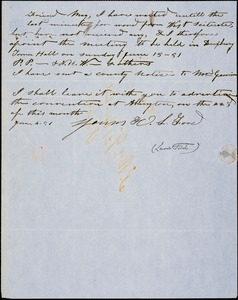 Friend May, I have waited untill the
last minute for word from Scituate,
but have not received any. & I therefore
appoint the meeting to be held in Duxbury
Town Hall on sunday June 15-51
P.P. — & R.H.
I have sent a county notice to Mr Garrison
I shall leave it with you to advertise
the convention at Abington, on the 22d
of this month
June 4-51 Yours H. S.